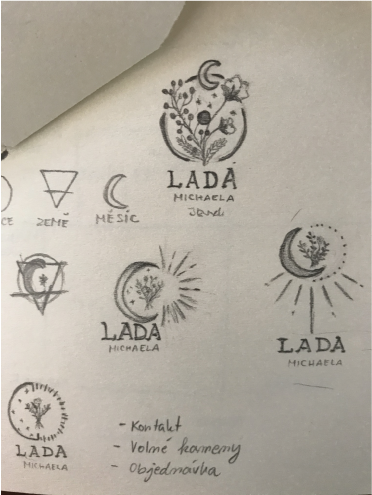 LADA
MICHAELA
CE ZEMĚ MĚSÍC
LADA
MICHAELA
LADA
MICHAELA
LADA
MICHAELA
- Kontakt
- Volné kameny
- Objednávka